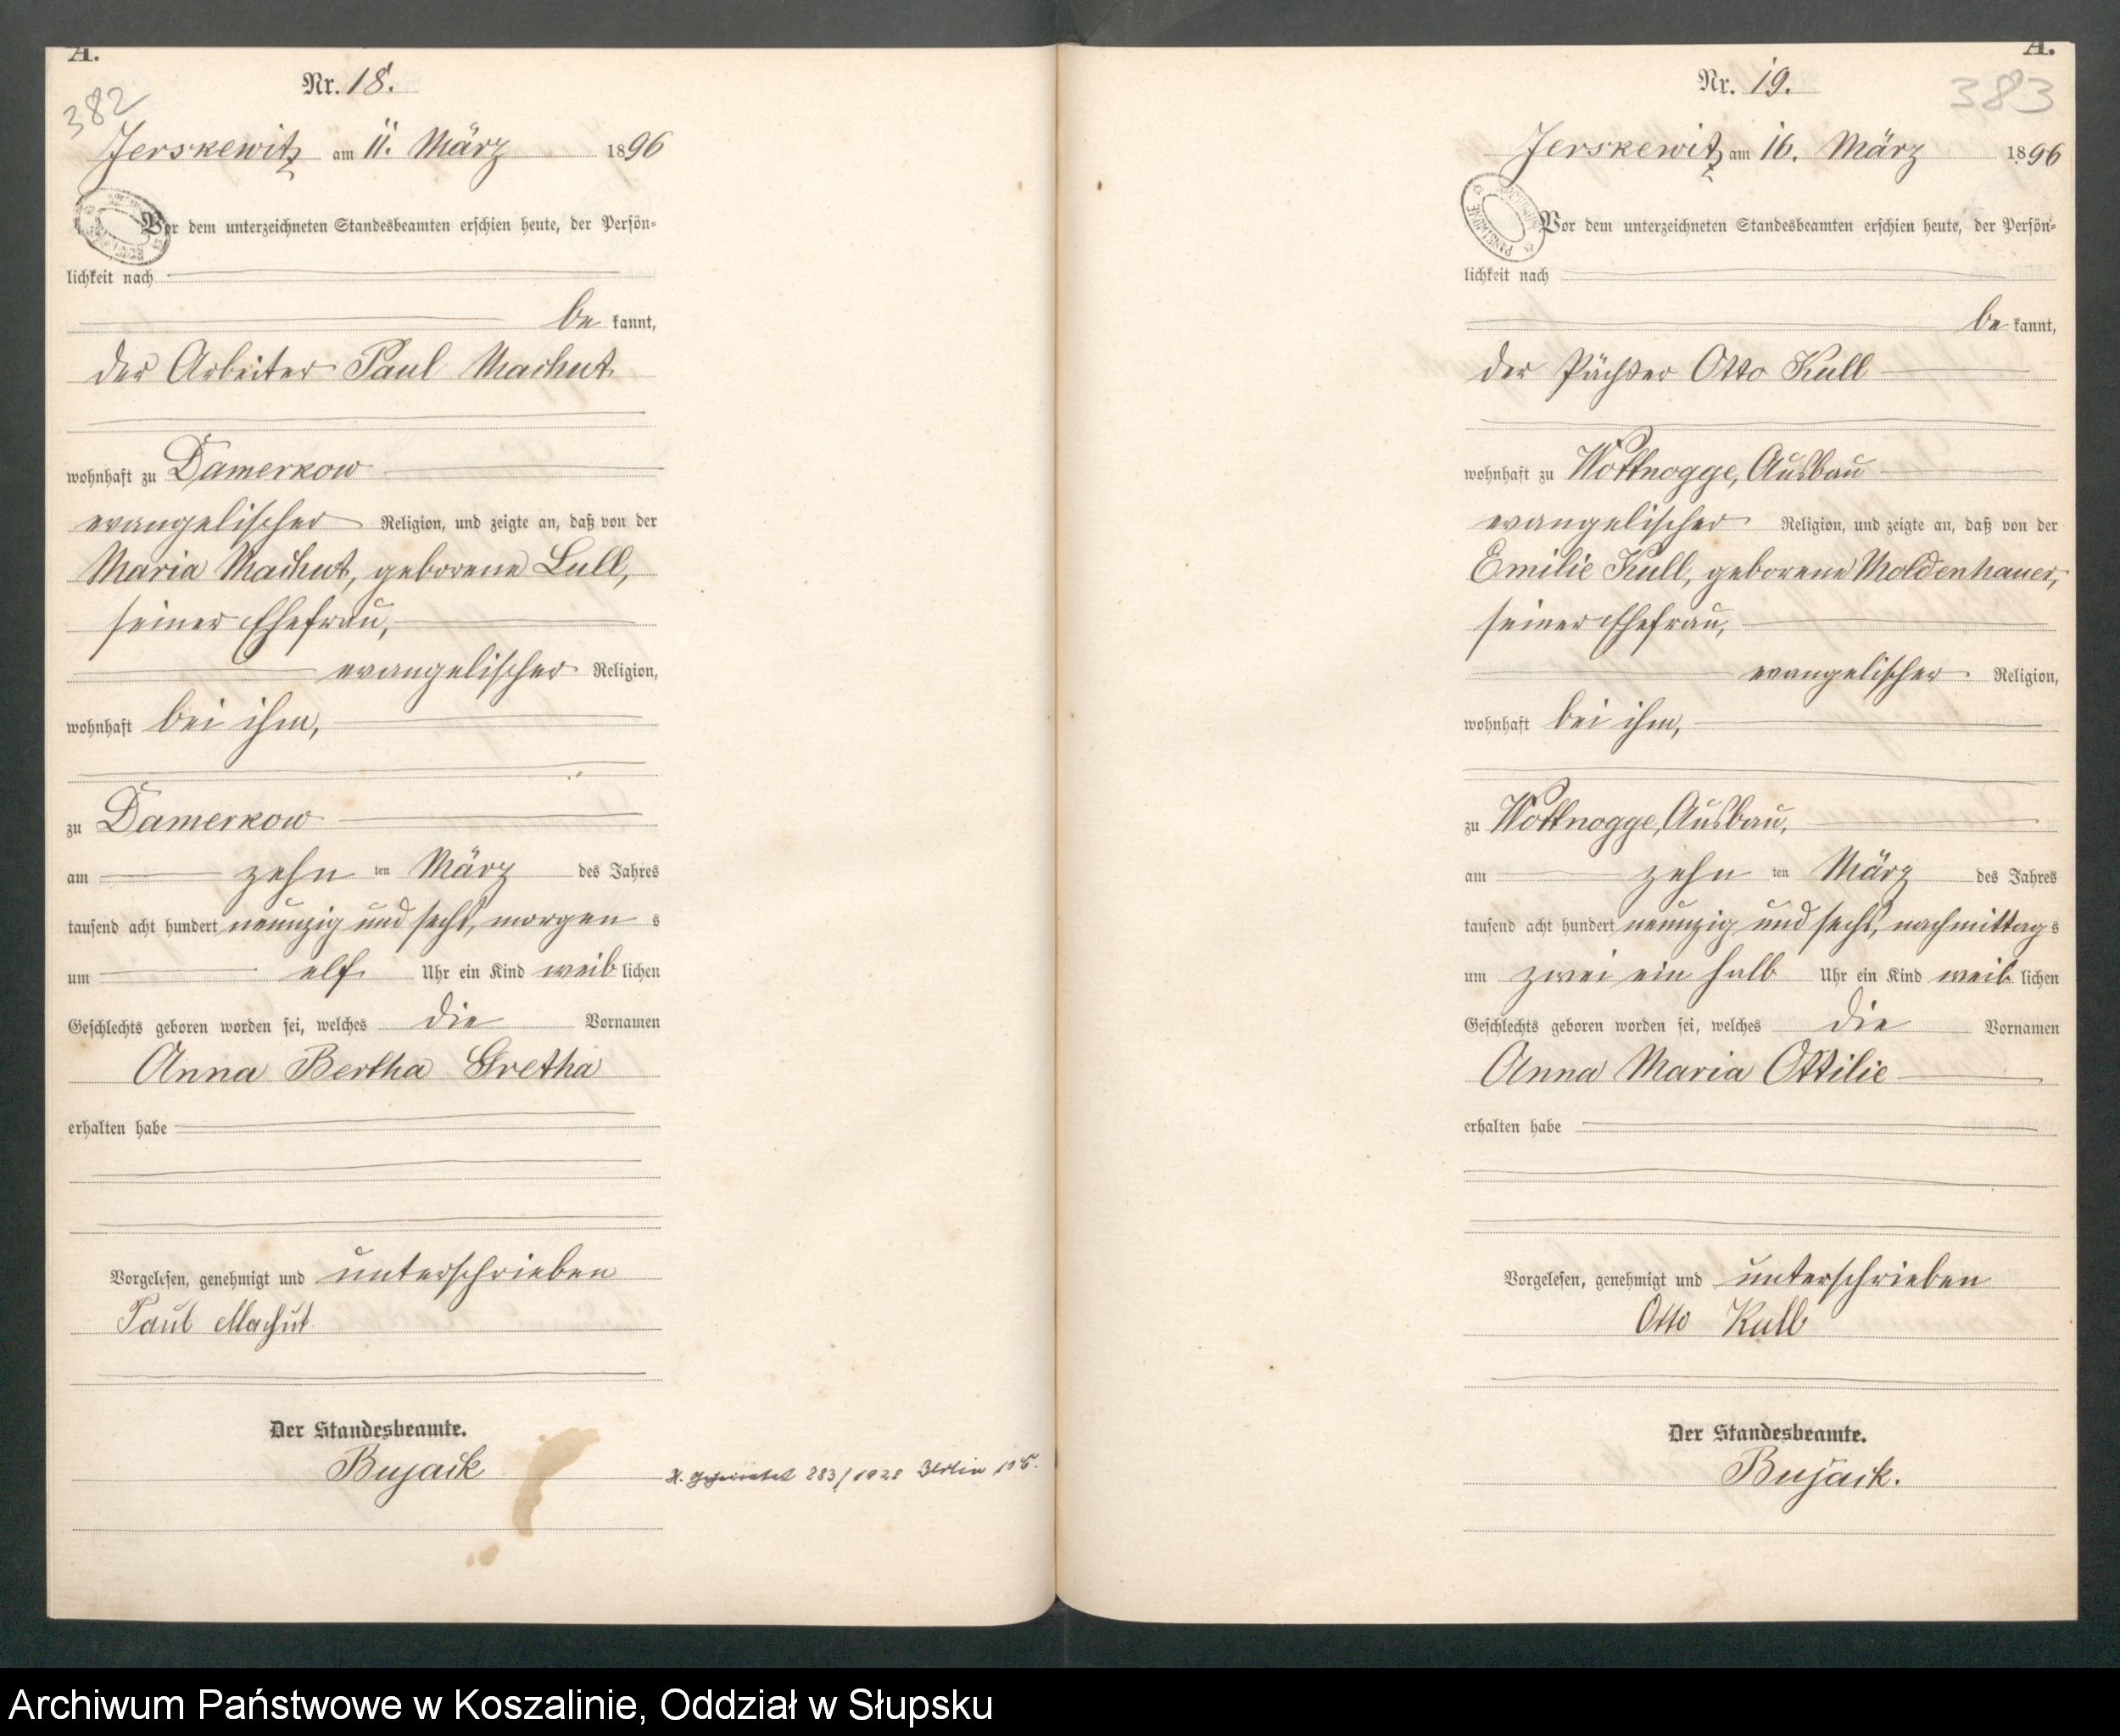 A.
Nr. 18.
382
Jerskewitz am 11. März 1896
Vor dem unterzeichneten Standesbeamten erschien heute, der Persön-
lichkeit nach
be kannt,
der Arbeiter Paul Machut
wohnhaft zu Damerkow
evangelischer Religion, und zeigte an, daß von der
Maria Machut, geborene Lull,
seiner Ehefrau,
evangelischer Religion,
wohnhaft bei ihm,
zu Damerkow
am zehn ten März des Jahres
tausend acht hundert neunzig und sechs, morgen s
um elf Uhr ein Kind weib lichen
Geschlechts geboren worden sei, welches die Vornamen
Anna Bertha Gretha
erhalten habe
Vorgelesen, genehmigt und unterschrieben
Paul Machut
Der Standesbeamte.
Bujack
geheiratet 283/1928 Berlin
A.
Nr. 19.
383
Jerskewitz am 16. März 1896
Vor dem unterzeichneten Standesbeamten erschien heute, der Persön-
lichkeit nach
be kannt,
der Pächter Otto Kull
wohnhaft zu Wottnogge, Ausbau
evangelischer Religion, und zeigte an, daß von der
Emilie Kull, geborene Moldenhauer,
seiner Ehefrau,
evangelischer Religion,
wohnhaft bei ihm,
zu Wottnogge, Ausbau,
am zehn ten März des Jahres
tausend acht hundert neunzig und sechs, nachmittag s
um zwei ein halb Uhr ein Kind weib lichen
Geschlechts geboren worden sei, welches die Vornamen
Anna Maria Ottilie
erhalten habe
Vorgelesen, genehmigt und unterschrieben
Otto Kull
Der Standesbeamte.
Bujack.
Archiwum Państwowe w Koszalinie, Oddział w Słupsku